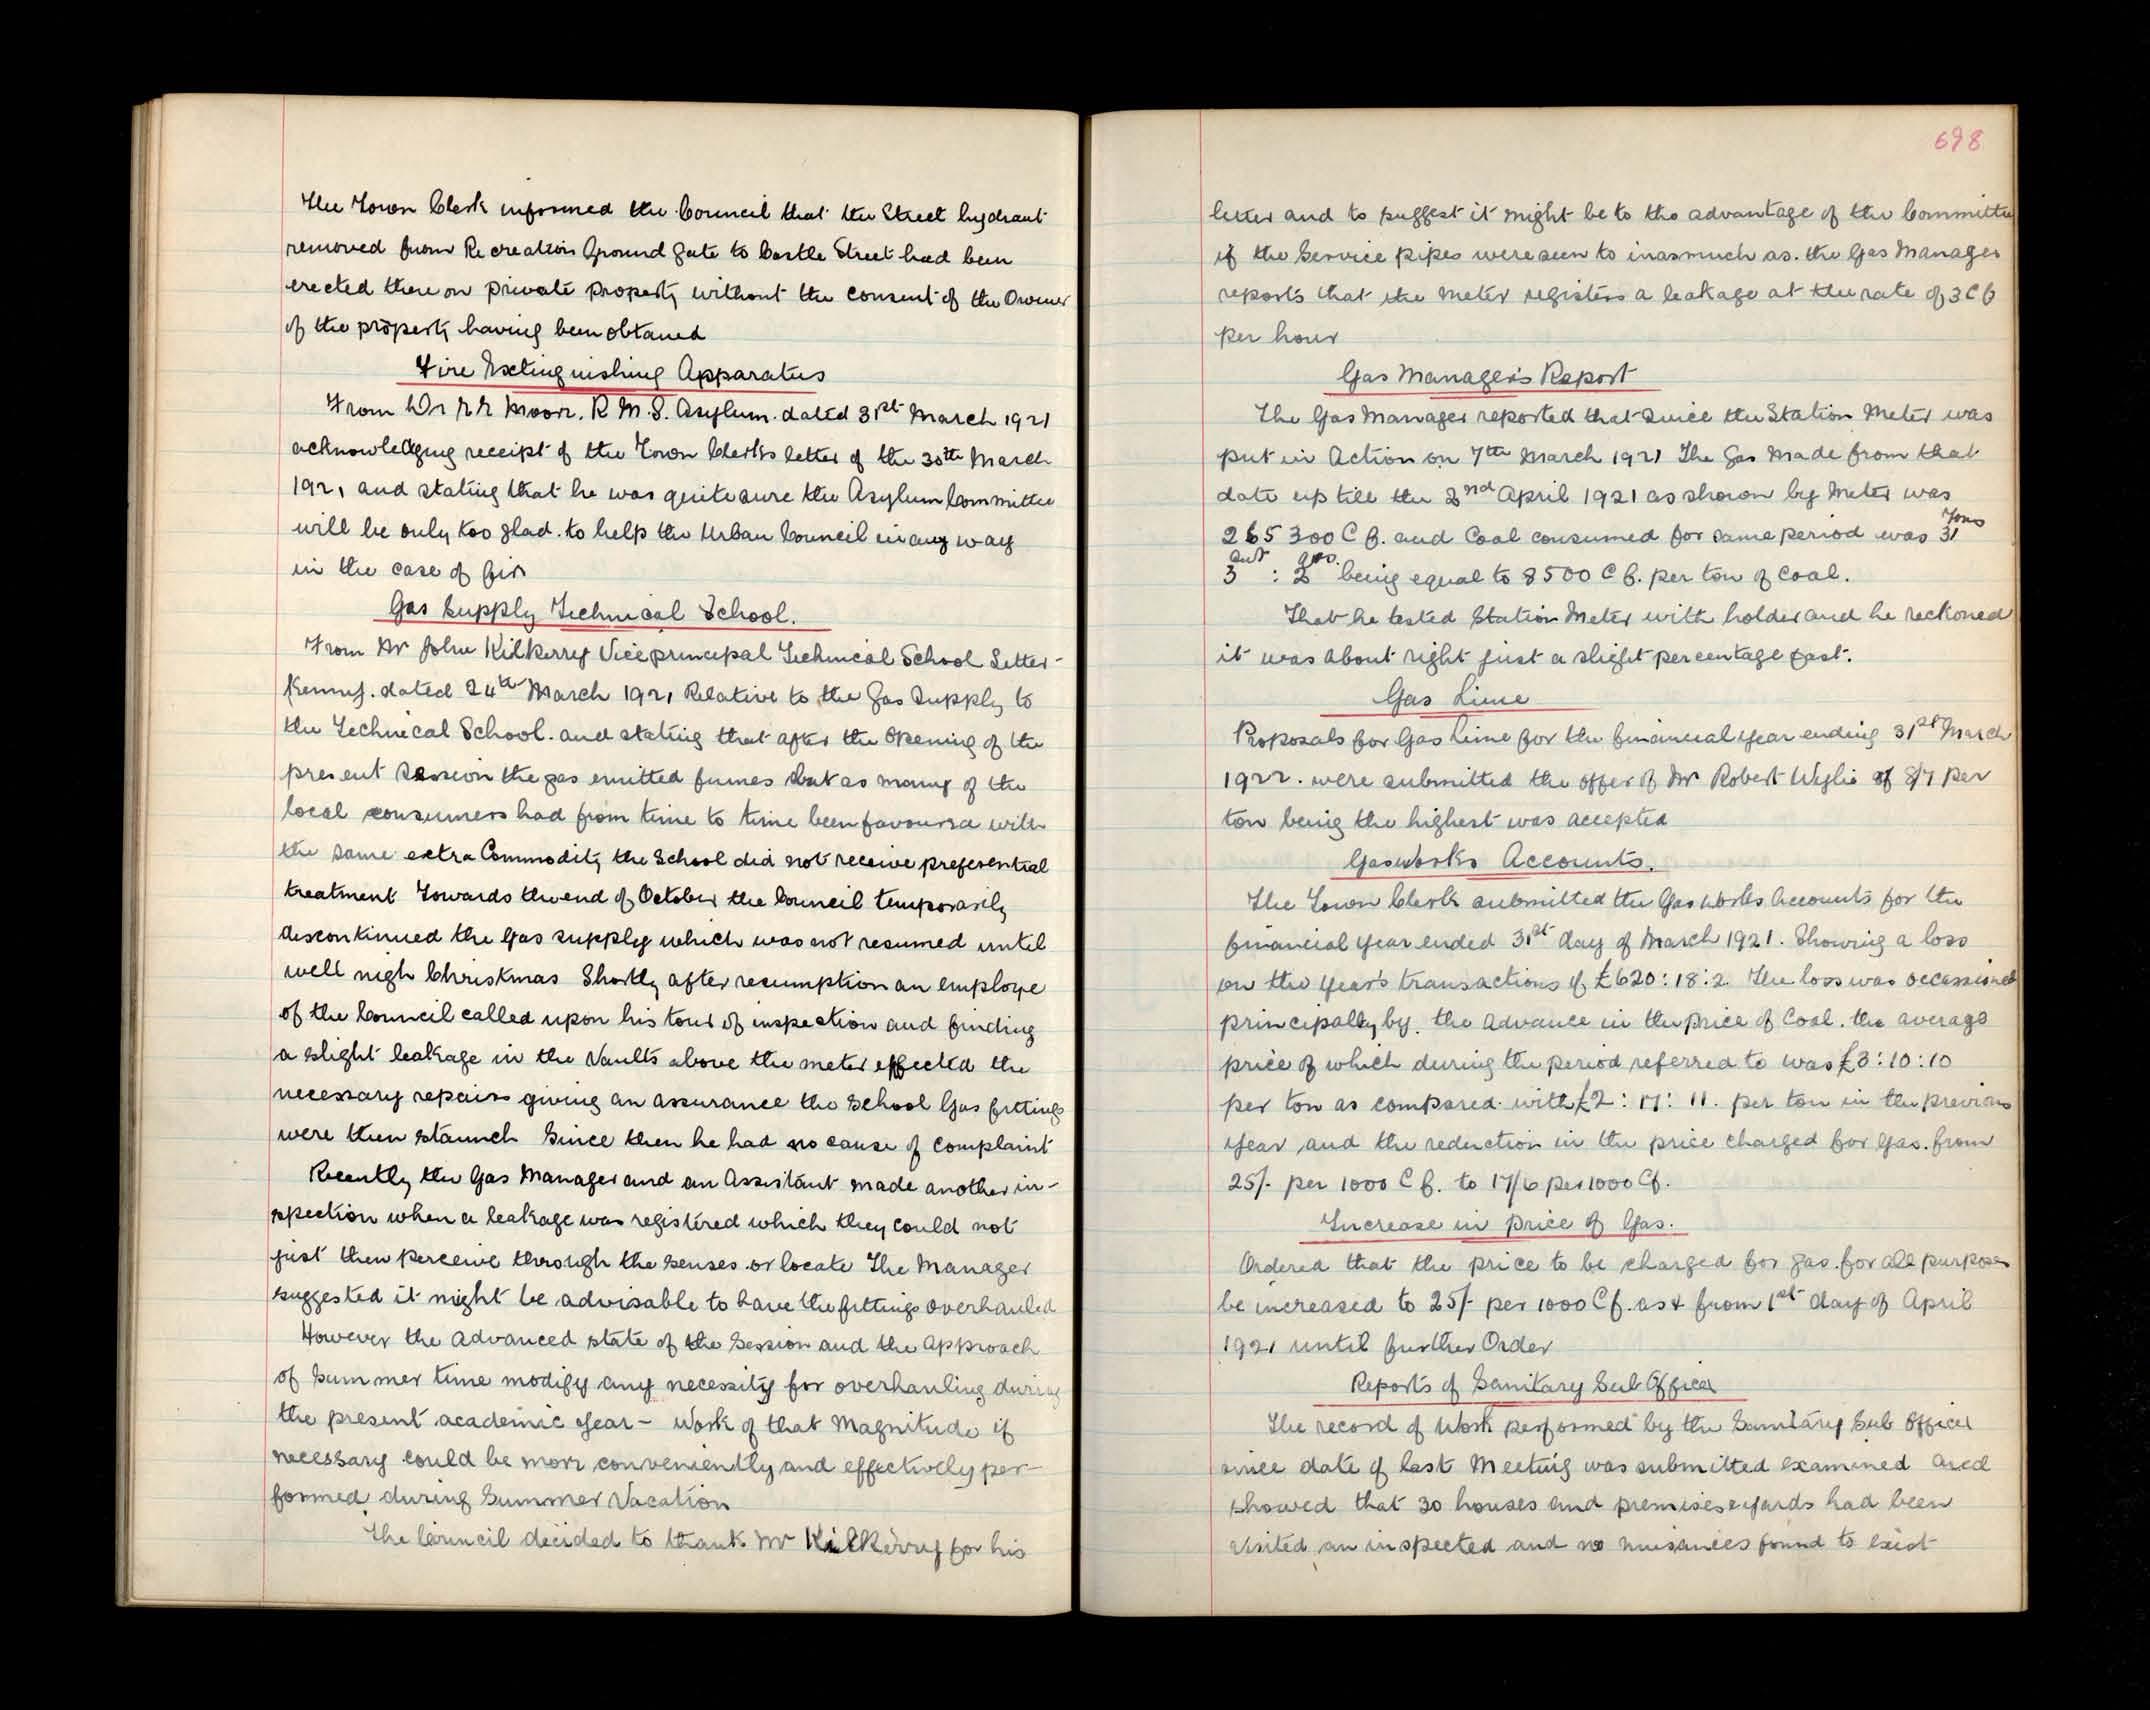 The Town Clerk informed the Council that the Street hydrant
removed from Recreation Ground gate to Castle Street had been
erected there on private property without the consent of the Owner
of the property having been obtained
Fire Extinguishing Apparatus
From Dr Moore. R. M. S. Asylum. dated 31st March 1921
acknowledging receipt of the Town Clerks letter of the 30th March
1921 and stating that he was quite sure the Asylum Committee
will be only too glad. to help the Urban Council in any way
in the case of fire
Gas Supply Technical School.
From Mr John Kilkerry Vice principal Technical School Letter-
kenny. dated 24th March 1921 Relative to the Gas Supply to
the Technical School. and stating that after the opening of the
present Session the gas emitted fumes but as many of the
local consumers had from time to time been favoured with
the same extra Commodity the School did not receive preferential
treatment Towards the end of October the Council temporarily
discontinued the Gas supply which was not resumed until
well nigh Christmas Shortly after resumption an employe
of the Council called upon his tour of inspection and finding
a slight leakage in the Vaults above the meter effected the
necessary repairs giving an assurance the School Gas fittings
were then staunch Since then he had no cause of complaint
Recently the Gas Manager and an Assistant made another in-
spection when a leakage was registered which they could not
just then perceive through the senses or locate The Manager
suggested it might be advisable to have the fittings overhauled
However the advanced state of the Session and the Approach
of Summer time modify any necessity for overhauling during
the present academic year - Work of that Magnitude if
necessary could be more conveniently and effectively per-
formed during Summer Vacation
The Council decided to thank Mr Kilkerry for his
698
letter and to suggest it might be to the advantage of the Committee
if the Service pipes were seen to inasmuch as. the Gas Manager
reports that the meter registers a leakage at the rate of 3 C f
per hour
Gas Manager's Report
The Gas Manager reported that since the Station Meter was
put in Action on 7th March 1921 The Gas made from that
date up till the 2nd April 1921 as shown by meter was
265300 C f. and Coal consumed for same period was 31 Tons
3 cwt : 2 qrs. being equal to 8500 C f. per ton of coal.
That he tested Station Meter with holder and he reckoned
it was about right just a slight percentage fast.
Gas Lime
Proposals for Gas Lime for the financial year ending 31st March
1922. were submitted the offer of Mr Robert Wylie of 8/7 per
ton being the highest was accepted
Gasworks Accounts.
The Town Clerk submitted the Gas works Accounts for the
financial year ended 31st day of March 1921. Showing a loss
on the year's transactions of £620:18:2 The loss was occassioned
principally by the advance in the price of Coal. the average
price of which during the period referred to was £3:10:10
per ton as compared with £2:17:11. per ton in the previous
year and the reduction in the price charged for Gas. from
25/- per 1000 C f. to 17/6 per 1000 Cf.
Increase in price of Gas.
Ordered that the price to be charged for gas for all purposes
be increased to 25/- per 1000 C f. as & from 1st day of April
1921 until further Order
Reports of Sanitary Sub Officer
The record of Work performed by the Sanitary Sub Officer
since date of last Meeting was submitted examined and
showed that 30 houses and premises & yards had been
visited an inspected and no nuisances found to exist